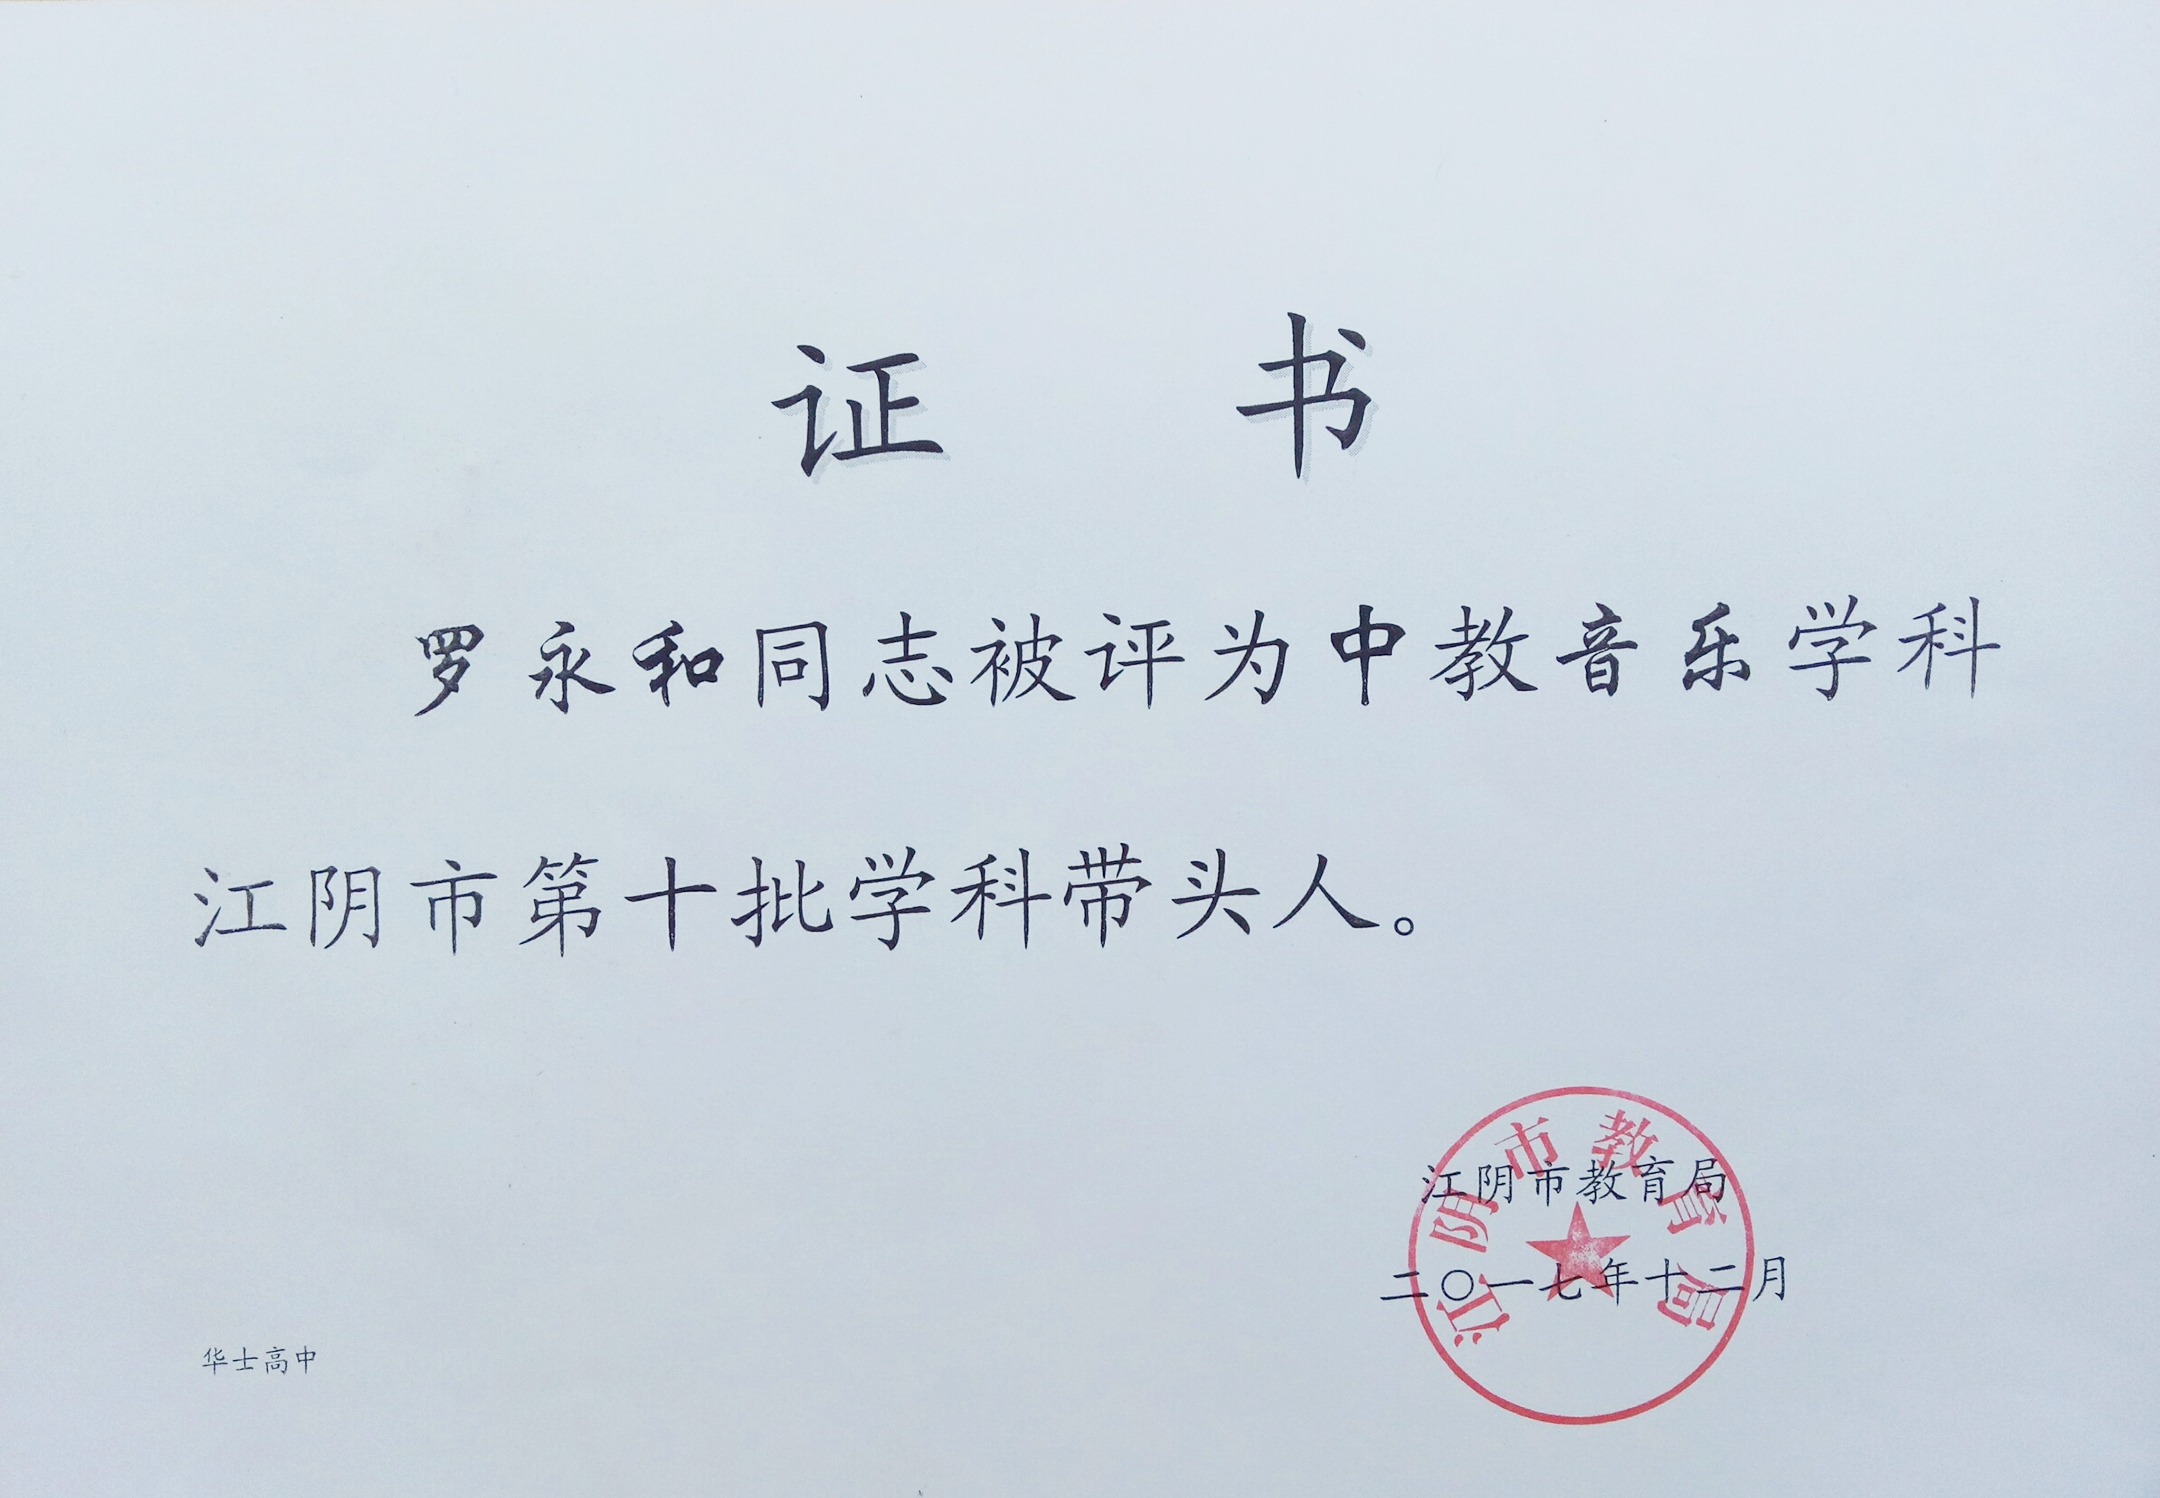 证 书
罗永和同志被评为中教音乐学科
江阴市第十批学科带头人。
江阴市教育局
江阴市教育局
二〇一七年十二月
华士高中